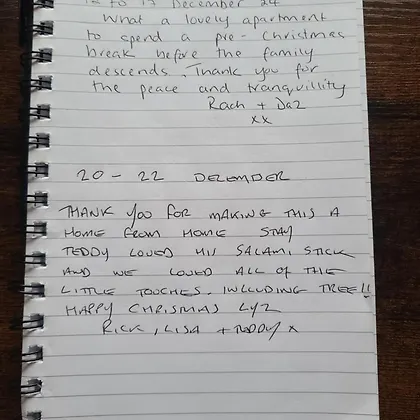 15 to 17 December 24
What a lovely apartment
to spend a pre-Christmas
break before the family
descends. Thank you for
the peace and tranquillity
Rach + Daz
xx
20 - 22 DECEMBER
THANK YOU FOR MAKING THIS A
HOME FROM HOME STAY
TEDDY LOVED HIS SALAMI STICK
AND WE LOVED ALL OF THE
LITTLE TOUCHES. INCLUDING TREE!!
HAPPY CHRISMAS LYZ
RICK, LISA + TEDDY x